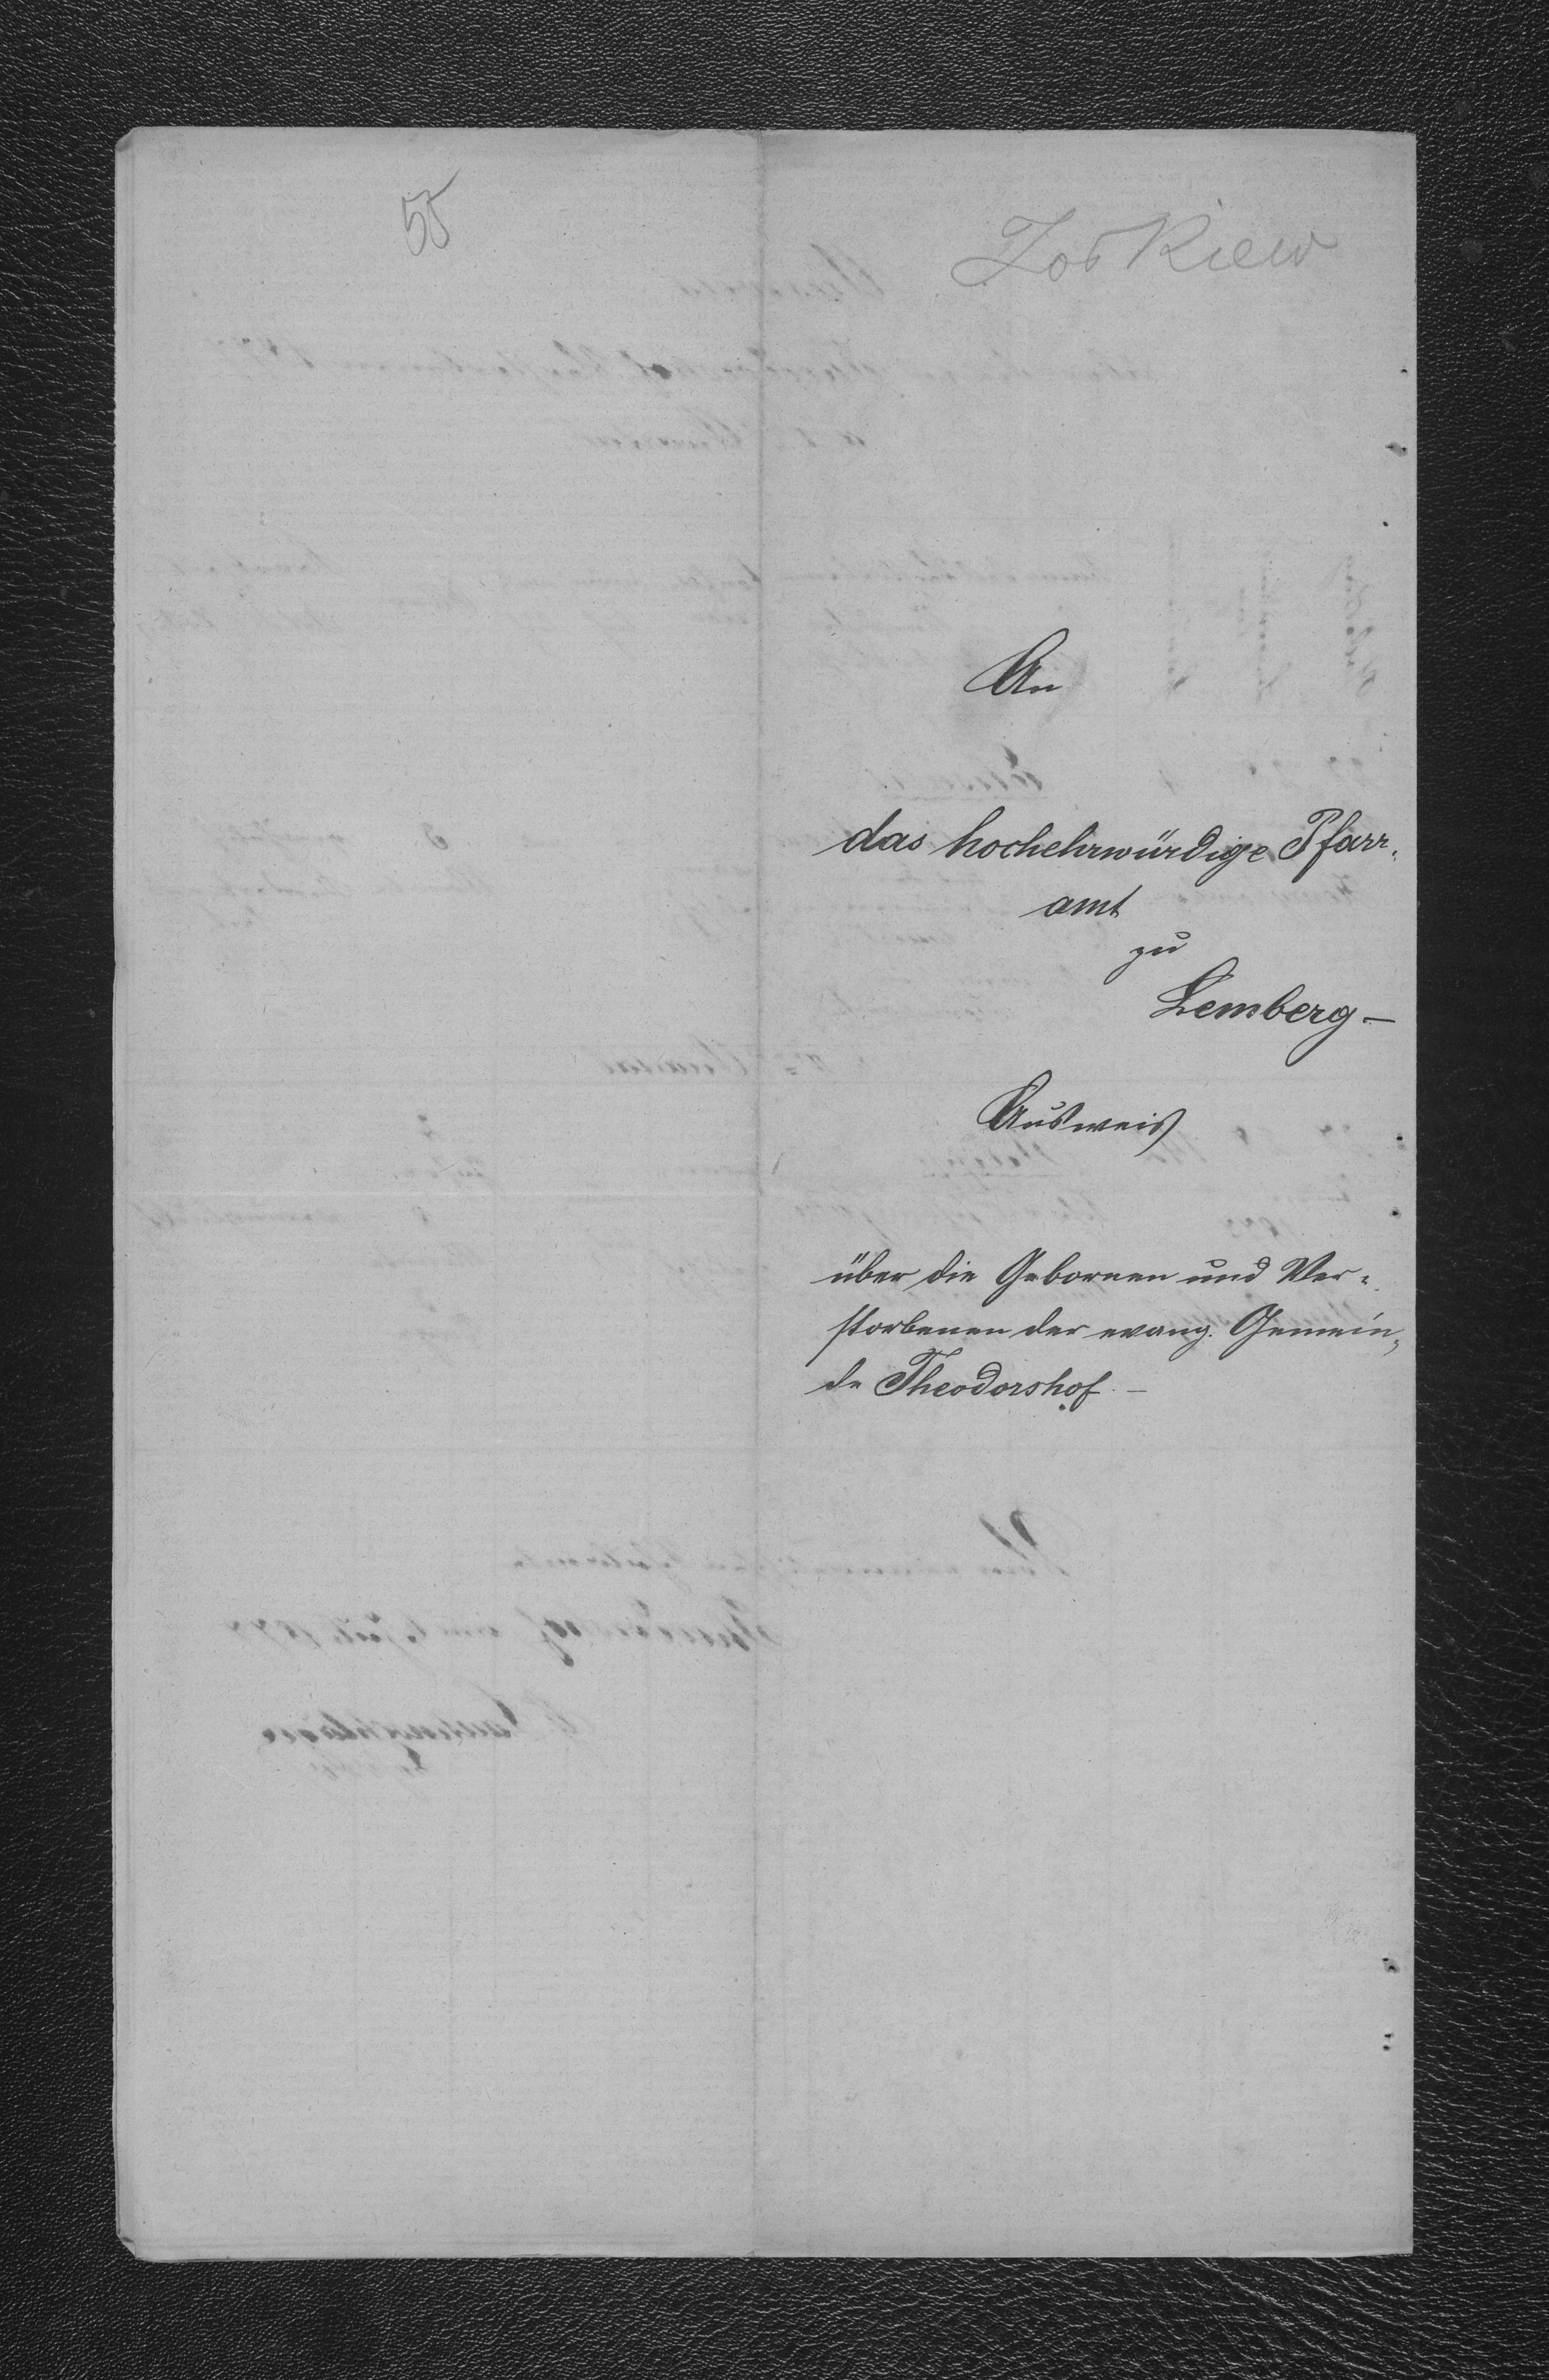 55
Zolkiew
An
das hochehrwürdige Pfarr-
amt
zu
Lemberg –
Ausweis
über die Gebornen und Ver-
storbenen der evang. Gemein-
de Theodorshof. –